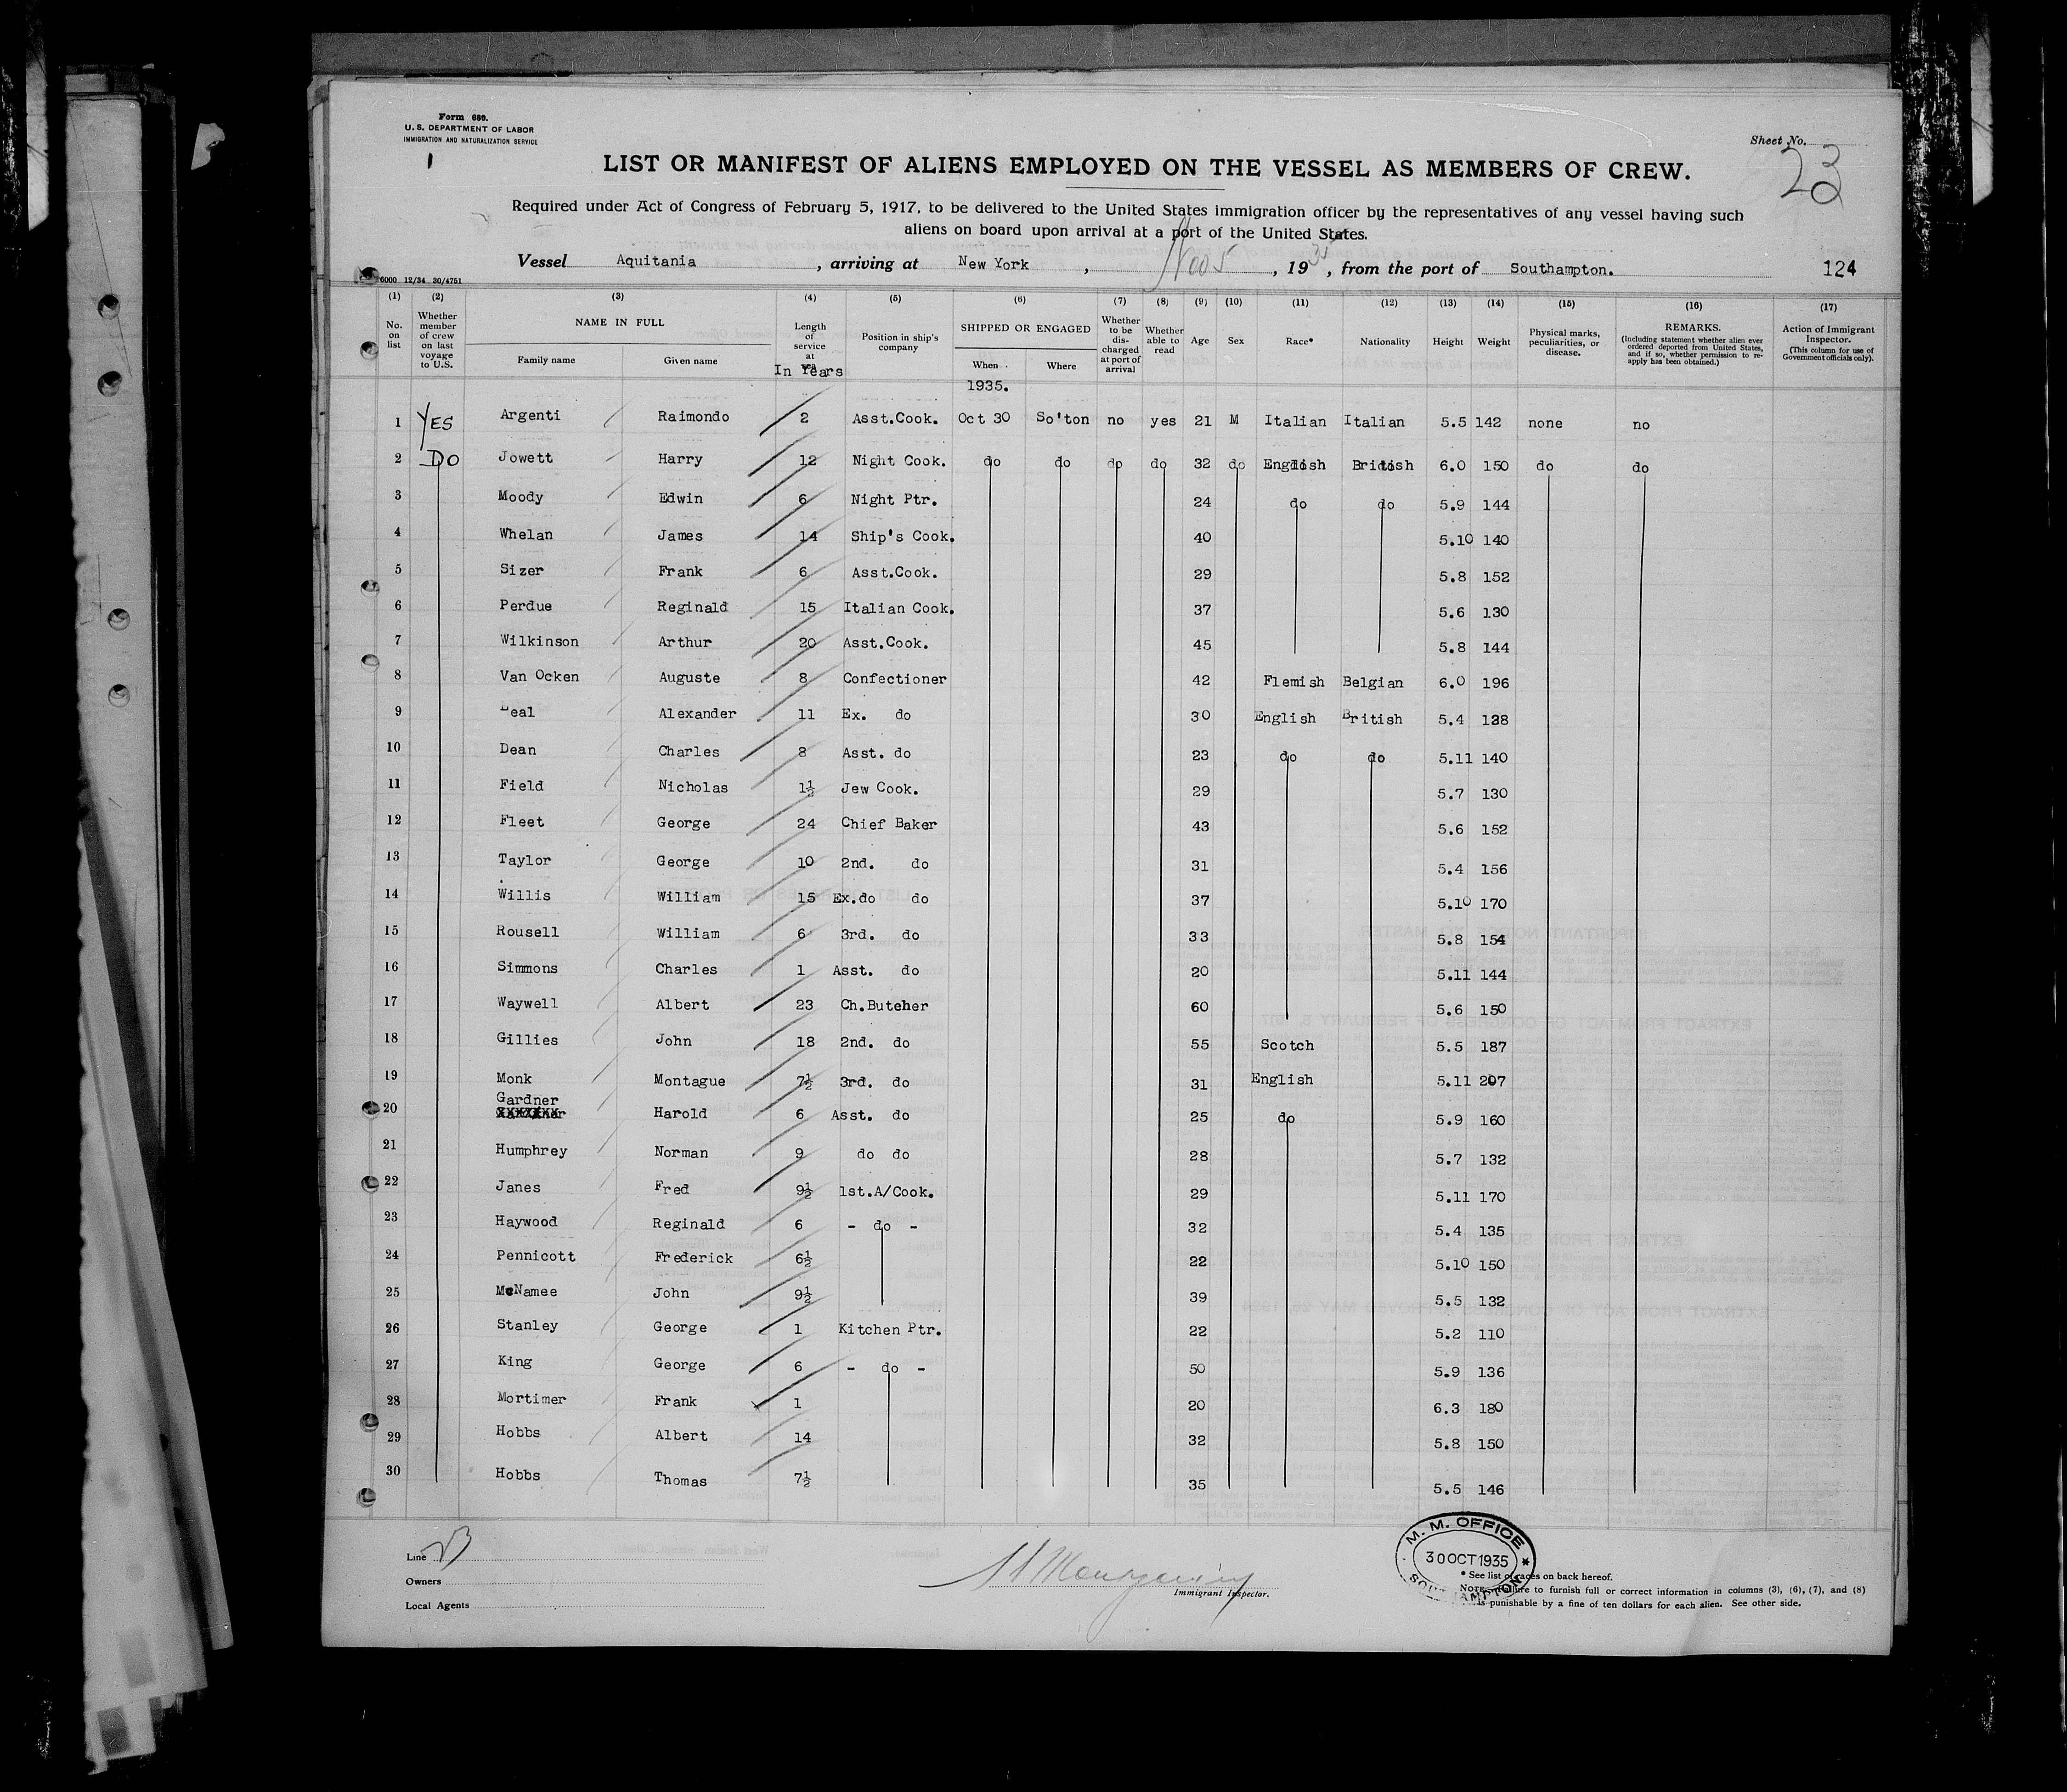 Form 680.
U. S. DEPARTMENT OF LABOR
IMMIGRATION AND NATURALIZATION SERVICE
Sheet No. 23
LIST OR MANIFEST OF ALIENS EMPLOYED ON THE VESSEL AS MEMBERS OF CREW.
Required under Act of Congress of February 5, 1917, to be delivered to the United States immigration officer by the representatives of any vessel having such
aliens on board upon arrival at a port of the United States.
Vessel Aquitania, arriving at New York, Nov 5, 1935, from the port of Southampton. 124
6000 12/34 30/4751
(1) (2) (3) (4) (5) (6) (7) (8) (9) (10) (11) (12) (13) (14) (15) (16) (17)
No. on list Whether member of crew on last voyage to U.S. NAME IN FULL Family name Given name Length of service at sea In Years Position in ship's company SHIPPED OR ENGAGED When Where Whether to be discharged at port of arrival Whether able to read Age Sex Race* Nationality Height Weight Physical marks, peculiarities, or disease. REMARKS. (Including statement whether alien ever ordered deported from United States, and if so, whether permission to reapply has been obtained.) Action of Immigrant Inspector. (This column for use of Government officials only).
1935.
1 YES Argenti Raimondo 2 Asst.Cook. Oct 30 So'ton no yes 21 M Italian Italian 5.5 142 none no
2 DO Jowett Harry 12 Night Cook. do do do do 32 do English British 6.0 150 do do
3 Moody Edwin 6 Night Ptr. 24 do do 5.9 144
4 Whelan James 14 Ship's Cook. 40 5.10 140
5 Sizer Frank 6 Asst.Cook. 29 5.8 152
6 Perdue Reginald 15 Italian Cook. 37 5.6 130
7 Wilkinson Arthur 20 Asst.Cook. 45 5.8 144
8 Van Ocken Auguste 8 Confectioner 42 Flemish Belgian 6.0 196
9 Deal Alexander 11 Ex. do 30 English British 5.4 128
10 Dean Charles 8 Asst. do 23 do do 5.11 140
11 Field Nicholas 1½ Jew Cook. 29 5.7 130
12 Fleet George 24 Chief Baker 43 5.6 152
13 Taylor George 10 2nd. do 31 5.4 156
14 Willis William 15 Ex.do do 37 5.10 170
15 Rousell William 6 3rd. do 33 5.8 154
16 Simmons Charles 1 Asst. do 20 5.11 144
17 Waywell Albert 23 Ch.Butcher 60 5.6 150
18 Gillies John 18 2nd. do 55 Scotch 5.5 187
19 Monk Montague 7½ 3rd. do 31 English 5.11 207
20 Gardner Harold 6 Asst. do 25 do 5.9 160
21 Humphrey Norman 9 do do 28 5.7 132
22 Janes Fred 9½ 1st.A/Cook. 29 5.11 170
23 Haywood Reginald 6 - do - 32 5.4 135
24 Pennicott Frederick 6½ 22 5.10 150
25 McNamee John 9½ 39 5.5 132
26 Stanley George 1 Kitchen Ptr. 22 5.2 110
27 King George 6 - do - 50 5.9 136
28 Mortimer Frank 1 20 6.3 180
29 Hobbs Albert 14 32 5.8 150
30 Hobbs Thomas 7½ 35 5.5 146
Line
Owners
Local Agents
Immigrant Inspector.
M. M. OFFICE
30 OCT 1935
SOUTHAMPTON
* See list of races on back hereof.
NOTE.—Failure to furnish full or correct information in columns (3), (6), (7), and (8)
is punishable by a fine of ten dollars for each alien. See other side.